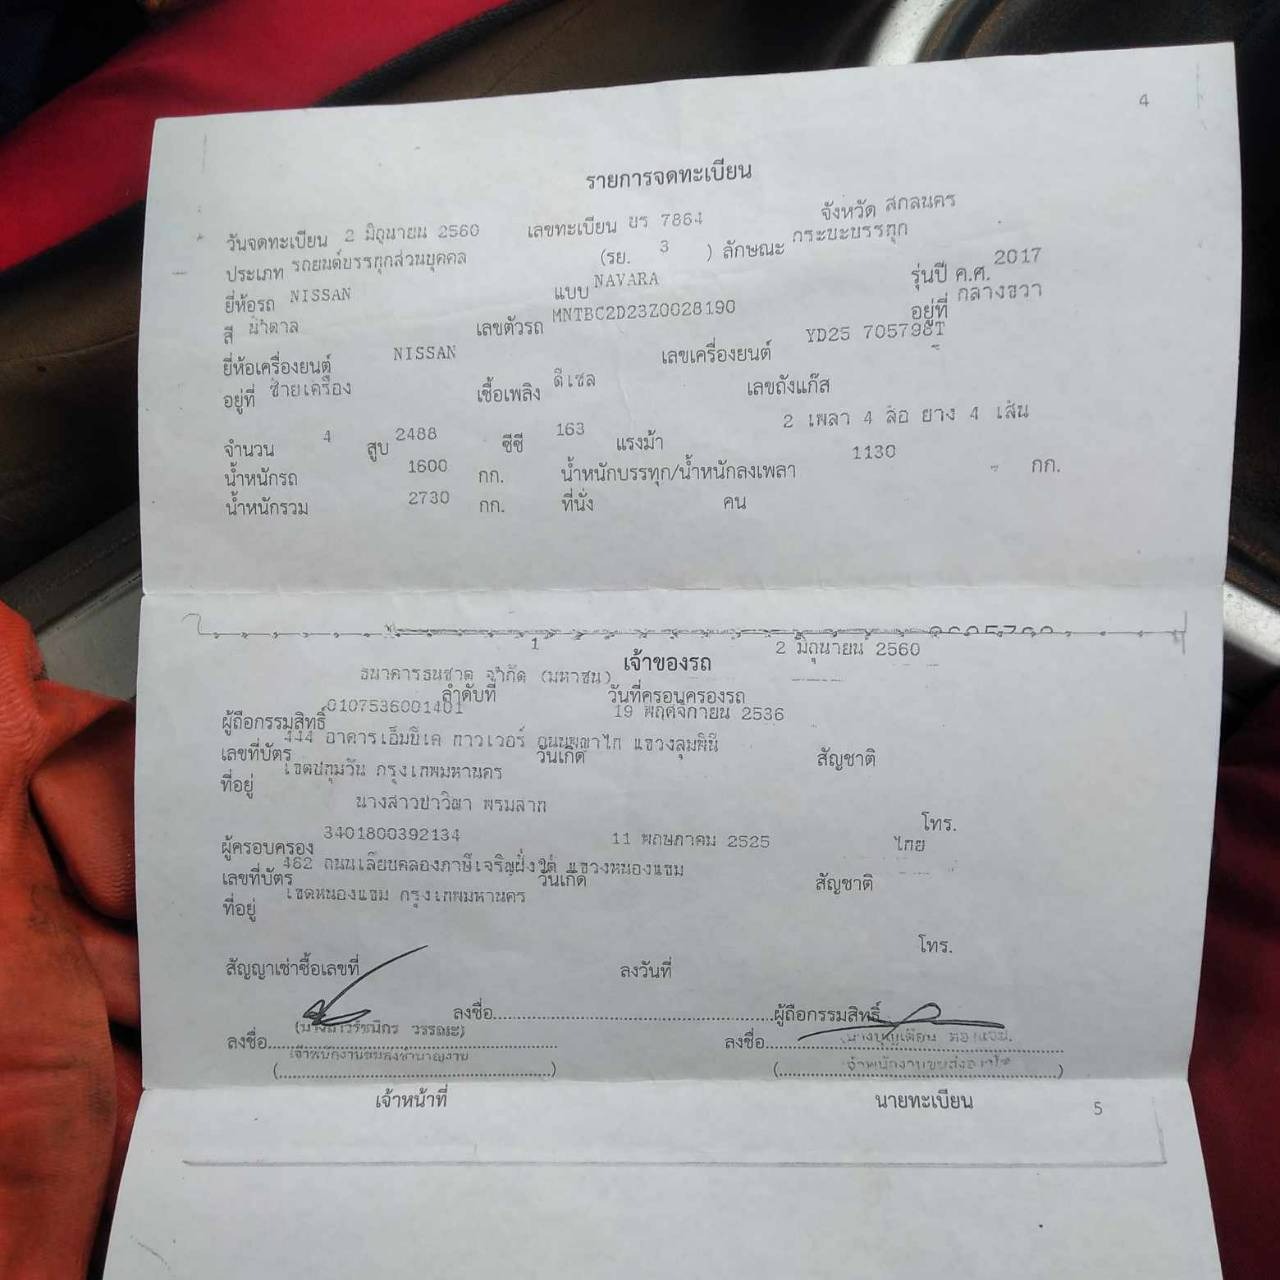 4
รายการจดทะเบียน
วันจดทะเบียน 2 มิถุนายน 2560 เลขทะเบียน บร 7864 จังหวัด สกลนคร
ประเภท รถยนต์บรรทุกส่วนบุคคล (รย. 3 ) ลักษณะ กระบะบรรทุก
ยี่ห้อรถ NISSAN แบบ NAVARA รุ่นปี ค.ศ. 2017
สี น้ำตาล เลขตัวรถ MNTBC2D23Z0028190 อยู่ที่ กลางขวา
ยี่ห้อเครื่องยนต์ NISSAN เลขเครื่องยนต์ YD25 705798T
อยู่ที่ ซ้ายเครื่อง เชื้อเพลิง ดีเซล เลขถังแก๊ส
จำนวน 4 สูบ 2488 ซีซี 163 แรงม้า 2 เพลา 4 ล้อ ยาง 4 เส้น
น้ำหนักรถ 1600 กก. น้ำหนักบรรทุก/น้ำหนักลงเพลา 1130 กก.
น้ำหนักรวม 2730 กก. ที่นั่ง คน
1 เจ้าของรถ 2 มิถุนายน 2560
ธนาคารธนชาต จำกัด (มหาชน)
ลำดับที่ วันที่ครอบครองรถ
0107536001401 19 พฤศจิกายน 2536
ผู้ถือกรรมสิทธิ์
444 อาคารเอ็มบีเค ทาวเวอร์ ถนนพญาไท แขวงลุมพินี
เลขที่บัตร วันเกิด สัญชาติ
เขตปทุมวัน กรุงเทพมหานคร
ที่อยู่
นางสาวปาวีณา พรมลาภ
โทร.
3401800392134 11 พฤษภาคม 2525 ไทย
ผู้ครอบครอง
462 ถนนเลียบคลองภาษีเจริญฝั่งใต้ แขวงหนองแขม
เลขที่บัตร วันเกิด สัญชาติ
เขตหนองแขม กรุงเทพมหานคร
ที่อยู่
โทร.
สัญญาเช่าซื้อเลขที่ ลงวันที่
ลงชื่อ ผู้ถือกรรมสิทธิ์
วรรณะ)
ลงชื่อ ลงชื่อ
เจ้าพนักงานขนส่งชำนาญงาน เจ้าพนักงานขนส่งอาวุโส
เจ้าหน้าที่ นายทะเบียน 5